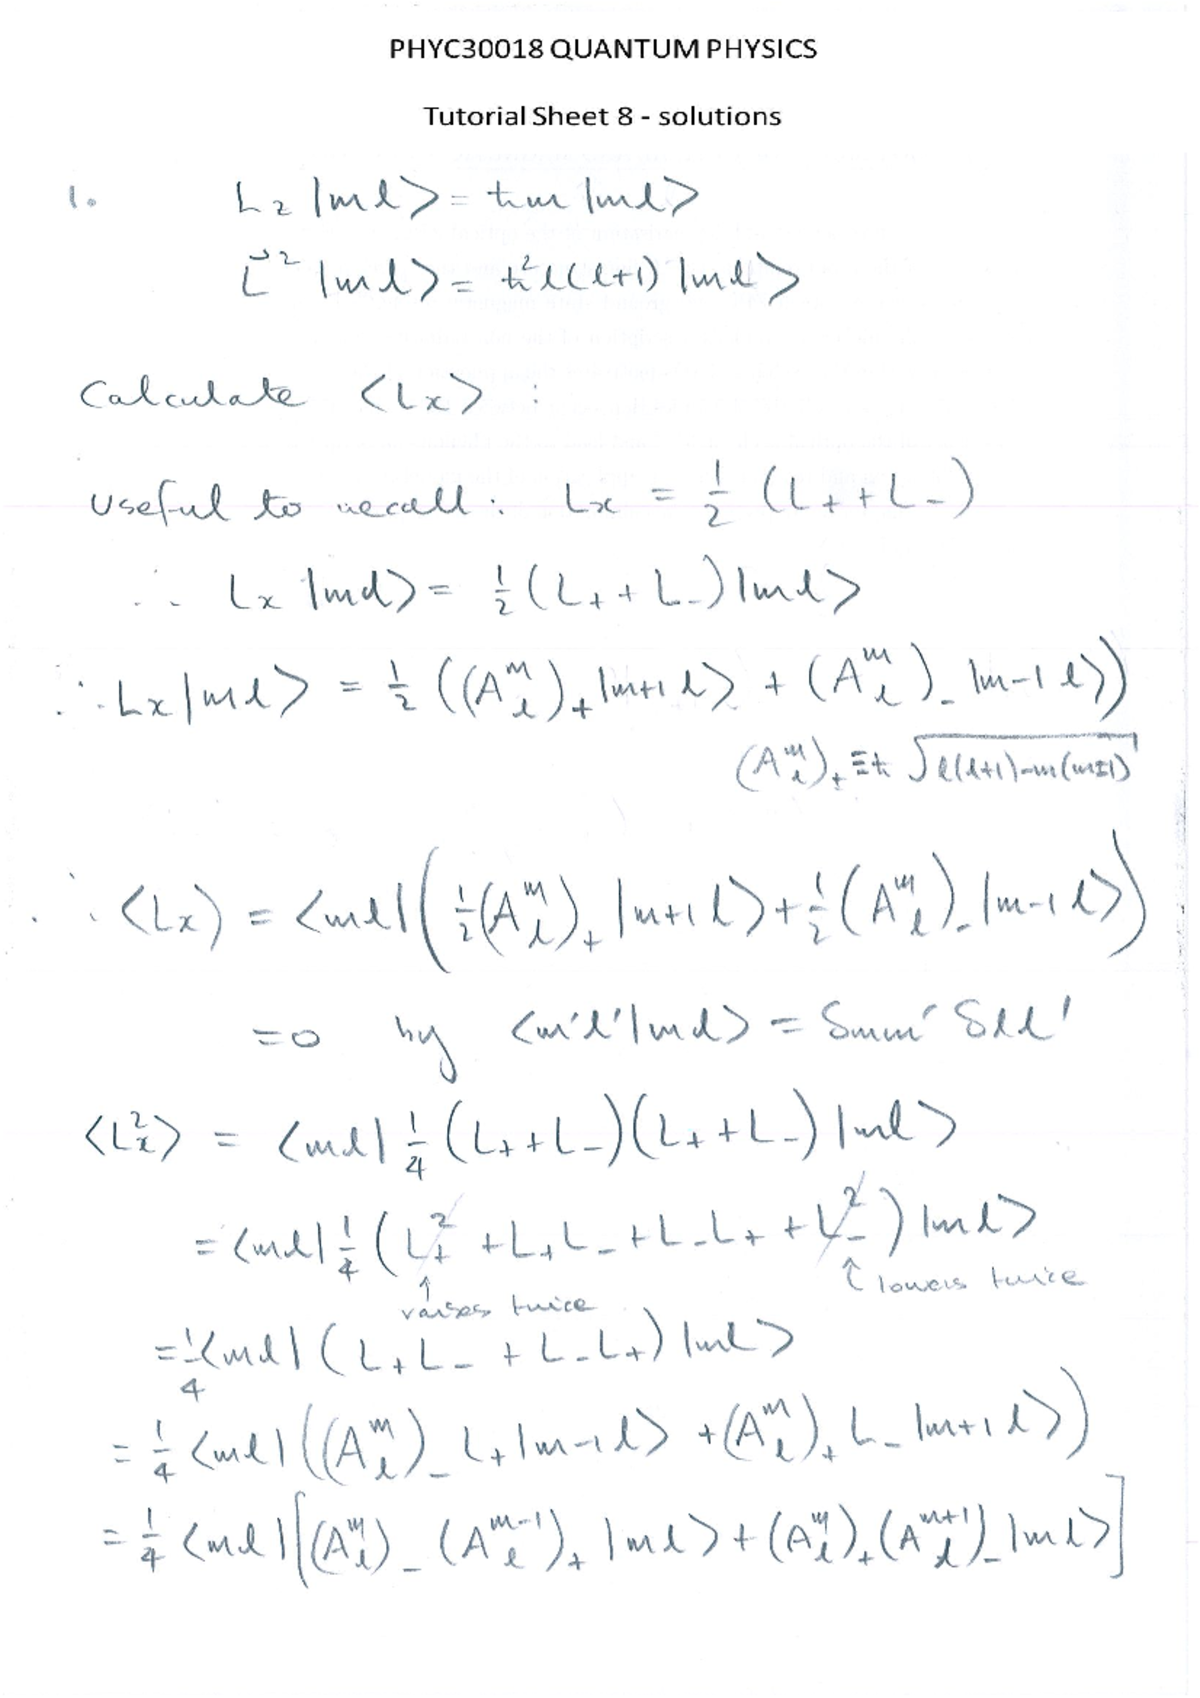 PHYC30018 QUANTUM PHYSICS
Tutorial Sheet 8 - solutions
1. L_z |ml> = ħm |ml>
L⃗² |ml> = ħ²l(l+1) |ml>
Calculate <Lx> :
Useful to recall: Lx = 1/2 (L₊ + L₋)
∴ Lx |ml> = 1/2 (L₊ + L₋) |ml>
∴ Lx |ml> = 1/2 ((A_l^m)₊ |m+1 l> + (A_l^m)₋ |m-1 l>)
(A_l^m)± ≡ ħ √(l(l+1)-m(m±1))
∴ <Lx> = <ml| (1/2 (A_l^m)₊ |m+1 l> + 1/2 (A_l^m)₋ |m-1 l>)
=0 by <m'l'|ml> = δmm' δll'
<Lx²> = <ml| 1/4 (L₊ + L₋)(L₊ + L₋) |ml>
= <ml| 1/4 (L₊² + L₊L₋ + L₋L₊ + L₋²) |ml>
↑ raises twice ↑ lowers twice
= 1/4 <ml| (L₊L₋ + L₋L₊) |ml>
= 1/4 <ml| ((A_l^m)₋ L₊ |m-1 l> + (A_l^m)₊ L₋ |m+1 l>)
= 1/4 <ml| [(A_l^m)₋ (A_l^{m-1})₊ |ml> + (A_l^m)₊ (A_l^{m+1})₋ |ml>]